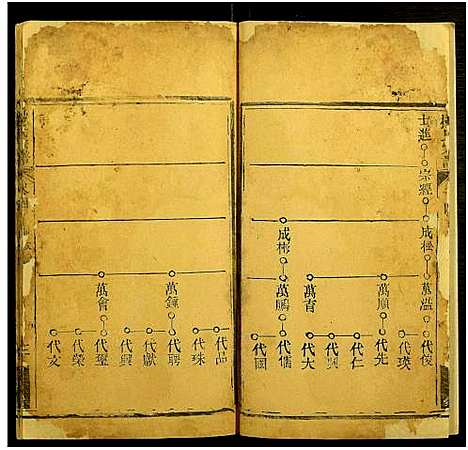 士進
宗經
成松
萬溢
代俊
代瑛
萬順
代先
代仁
萬青
代興
代大
成彬
萬鵬
代儒
代國
代品
代珠
萬鍾
代聘
代獻
代興
萬會
代璽
代榮
代文